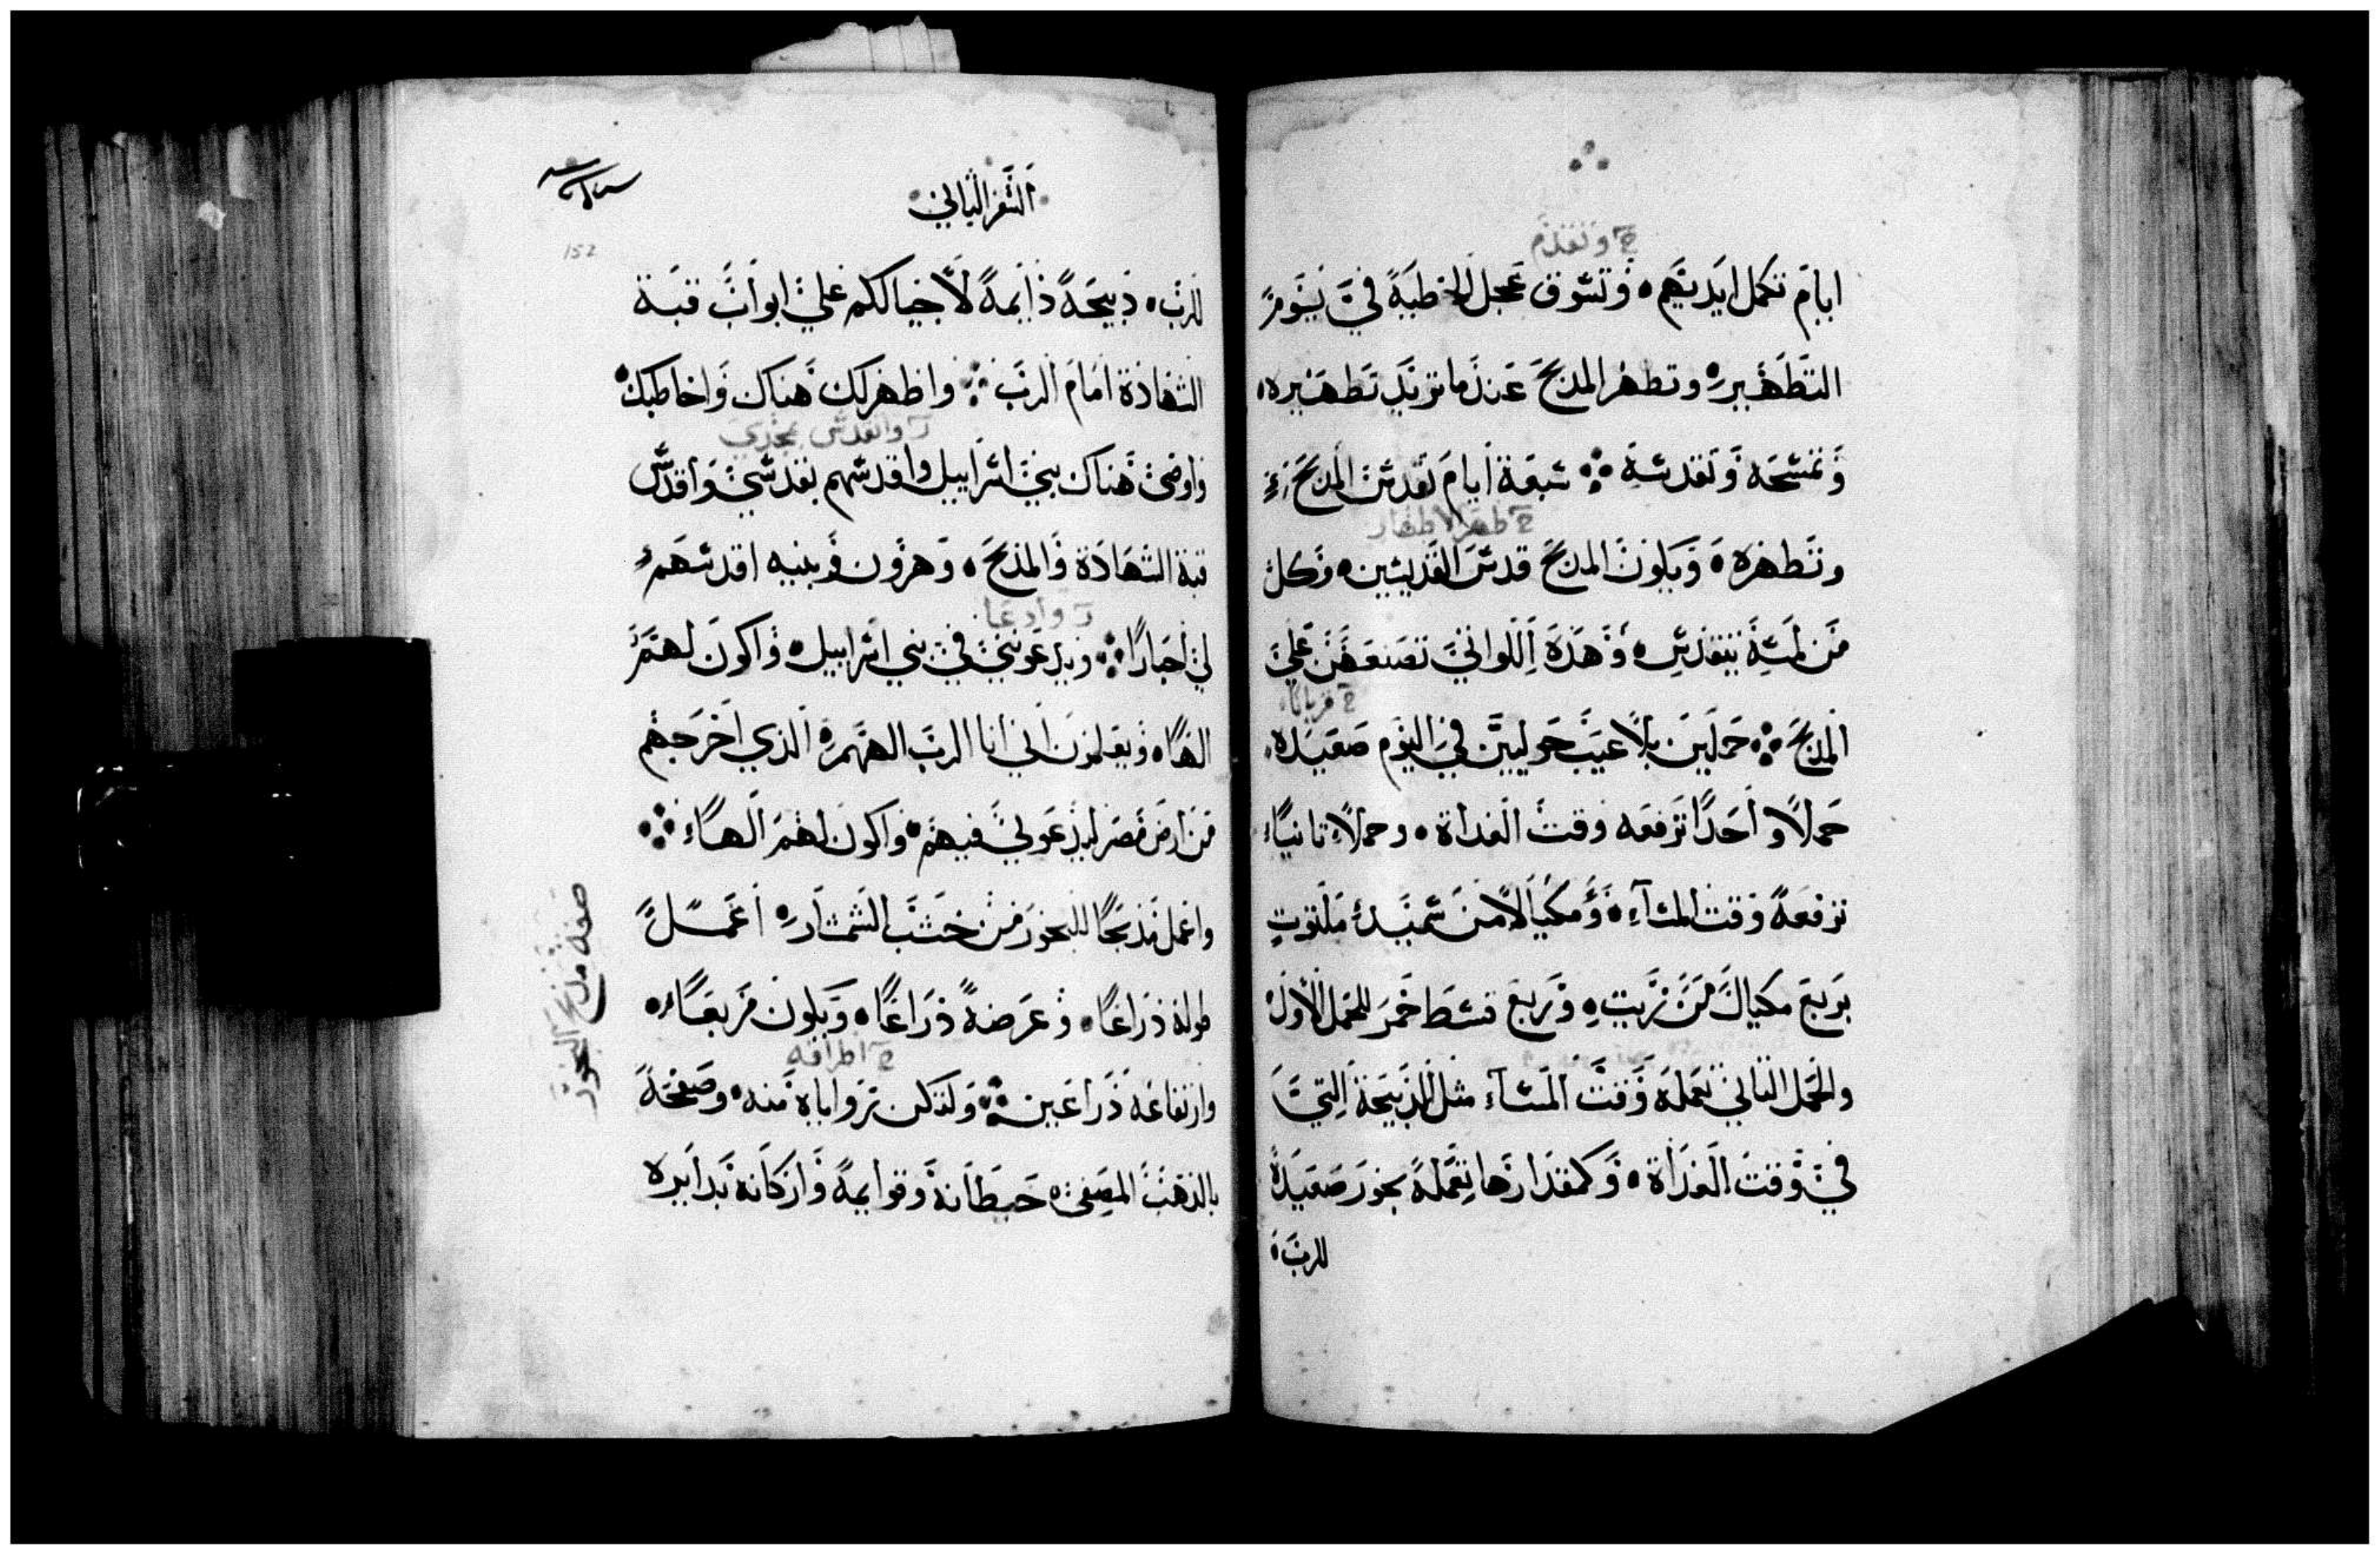 ح وتقدم
ايام تكمل ايديهم. وتسوق عجل الخطية في يوم
التطهير. وتطهر المدبح عندما تريد تطهيره.
وتمسحه وتقدسه. سبعة ايام تقدس المدبح
ح طهر الاطهار
وتطهره. ويكون المدبح قدس القديسين. وكل
من لمسه يتقدس. وهذه اللواتي تصنعهن علي
ح قربانا
المدبح. حملين بلا عيب حوليين في اليوم صعيده.
حملا واحدا ترفعه وقت الغداة. وحملا تانيا
ترفعه وقت المساء. ومكيالا من سميد ملتوت
بربع مكيال من زيت. وربع قسط خمر للحمل الاول
والحمل التاني تعمله وقت المساء مثل الذبيحة التي
في وقت الغداة. وكمقدارها تعمله بخور صعيدة
للرب.
السفر التاني
152
للرب. ذبيحة دايمة لاجيالكم علي ابواب قبة
الشهادة امام الرب. واظهر لك هناك واخاطبك
والقدس بمجدي
واوصي هناك بني اسراييل واقدسهم بقدسي واقدس
قبة الشهادة والمذبح. وهرون وبنيه اقدسهم
وادعا
لي احبارا. ويدعونني في بني اسراييل. واكون لهم
الها. ويعلمون اني انا الرب الههم الذي اخرجهم
من ارض مصر ليدعو لي فيهم. واكون لهم الها.
واعمل مذبحا للبخور من خشب الشمشار. اعمل
طوله ذراعا. وعرضه ذراعا. ويكون مربعا.
ح اطرافه
وارتفاعه ذراعين. ولتكن زواياه منه. وصفحه
بالذهب المصفى. حيطانه وقوايمه واركانه بدايره
صفة مذبح البخور